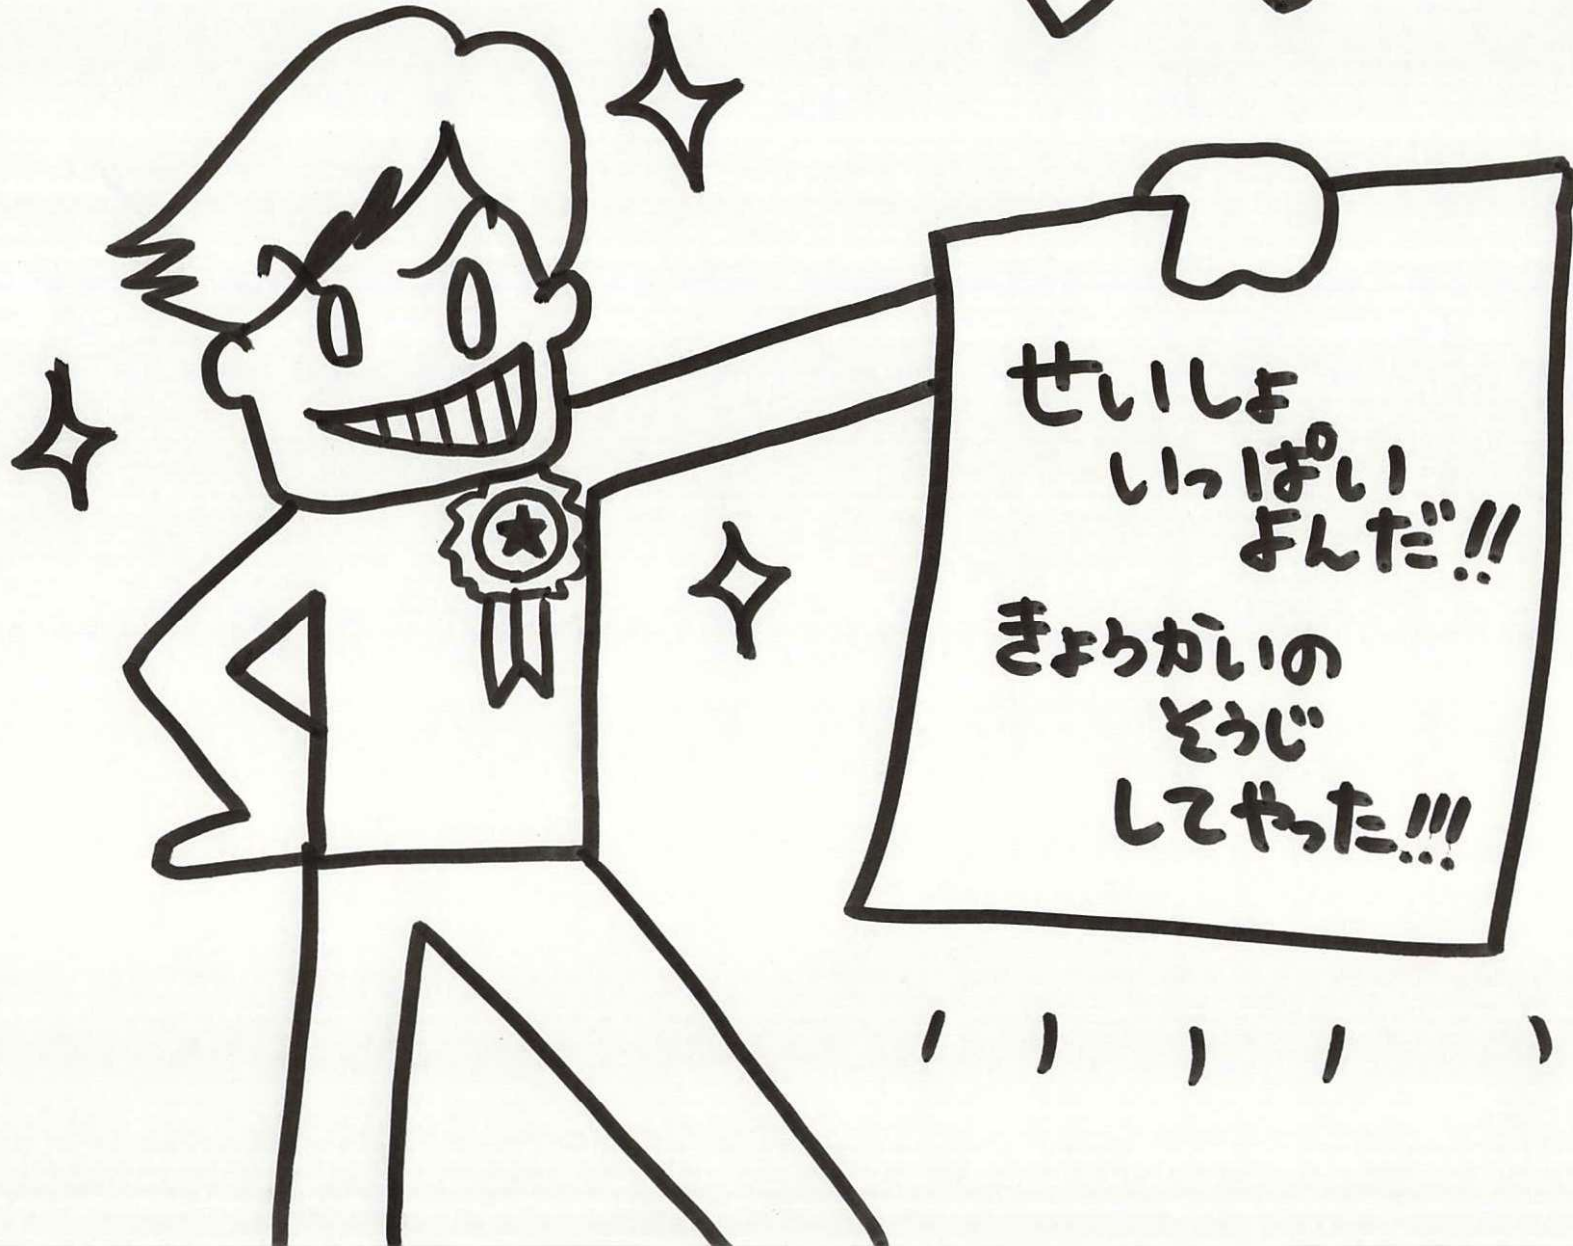 せいしょ
いっぱい
よんだ!!
きょうかいの
そうじ
してやった!!!